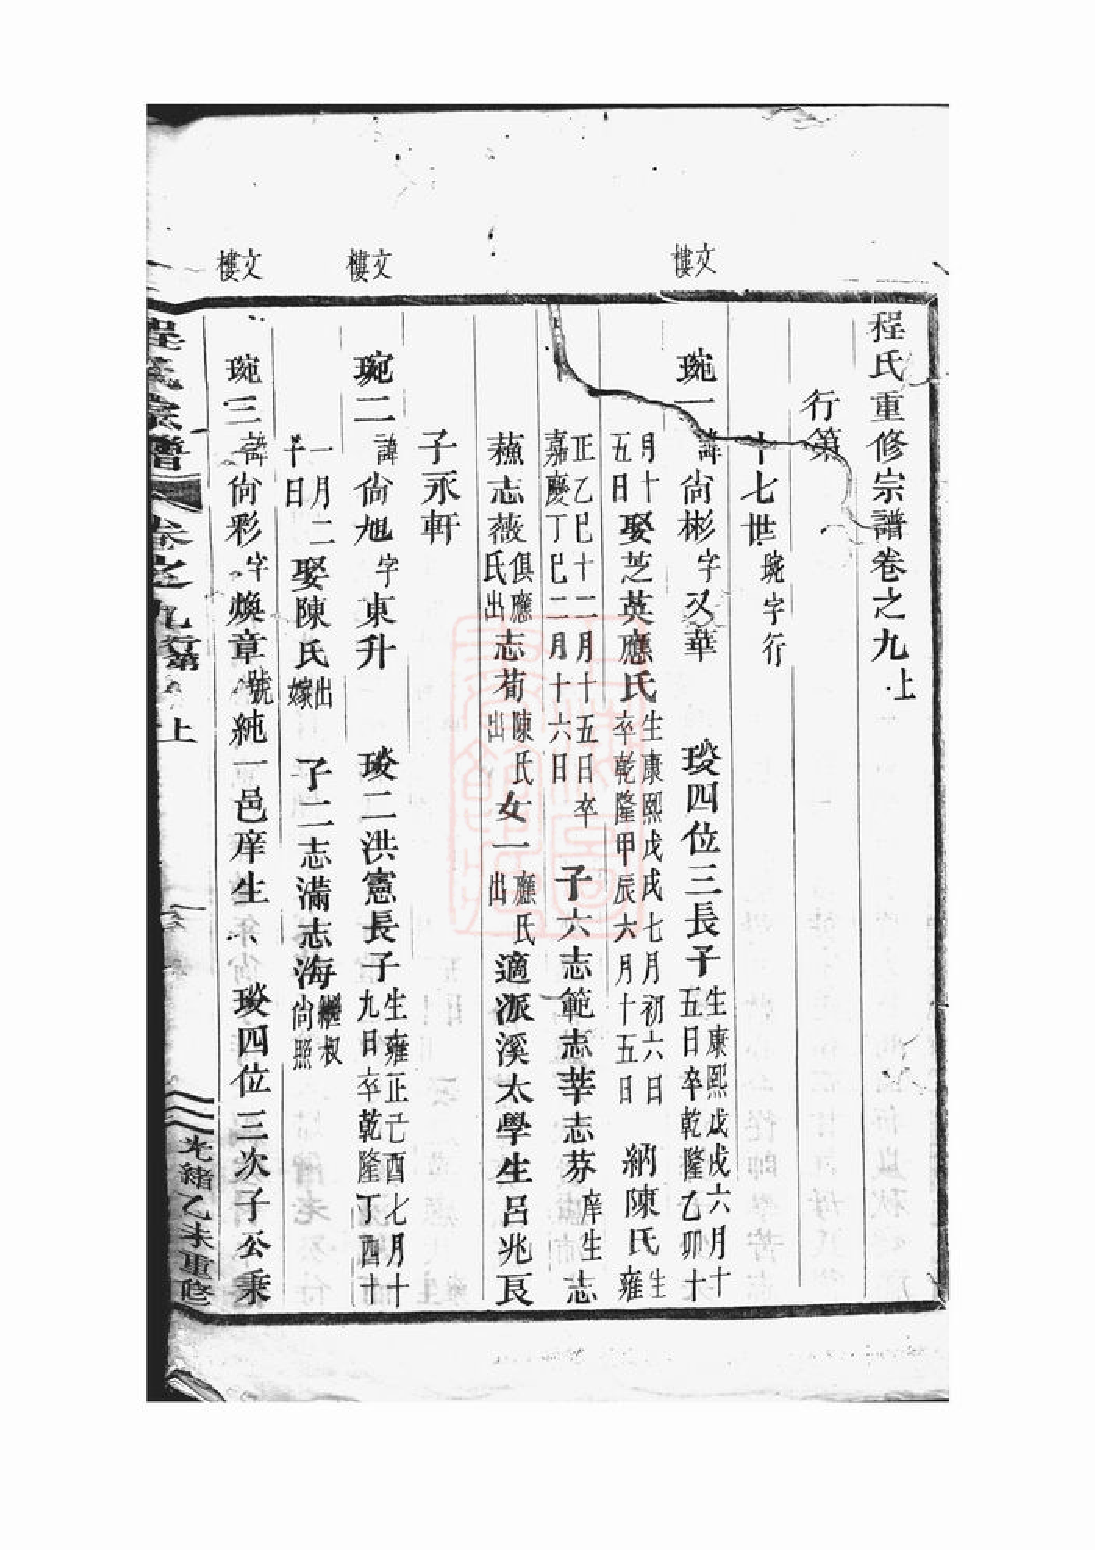 程氏重修宗譜卷之九上
行第
十七世琬字行
文樓
琬一諱尙彬字又華 琰四位三長子生康熙戊戌六月十五日卒乾隆乙卯十
月十五日娶芝英應氏生康熙戊戌七月初六日卒乾隆甲辰六月十五日 納陳氏生雍
正乙巳十二月十五日卒嘉慶丁巳二月十六日 子六志範志莘志芬庠生志
蘓志薇俱應氏出志荀陳氏出女一應氏出適派溪太學生呂兆良
子永軒
文樓
琬二諱尙旭字東升 琰二洪憲長子生雍正己酉七月十九日卒乾隆丁酉十
一月二十日娶陳氏出嫁 子二志滿志海繼叔尙照
文樓
琬三諱尙彩字煥章號純一邑庠生 琰四位三次子公秉
程氏宗譜 卷之九行第 上
光緒乙未重修